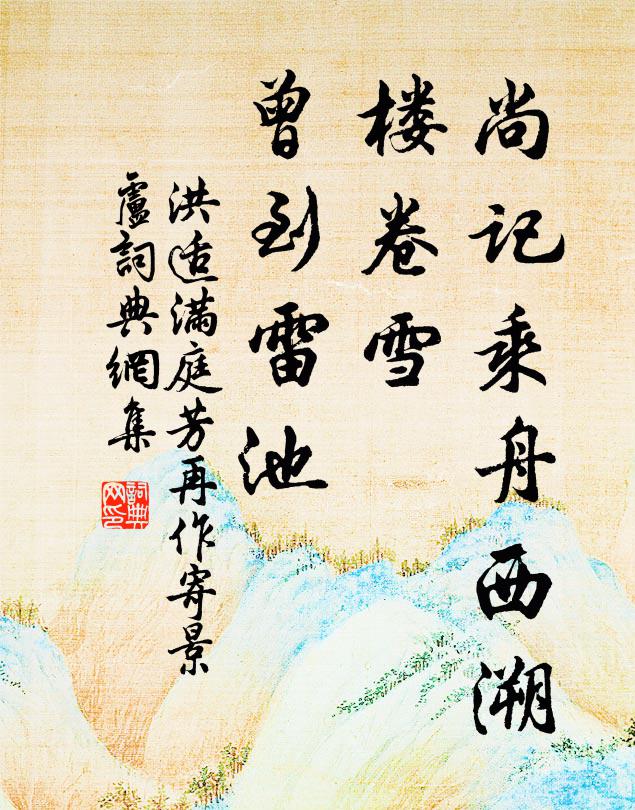 尚记乘舟西溯
楼卷雪
曾到雷池
洪适满庭芳再作寄景
盧詞典網集
詞典
网印